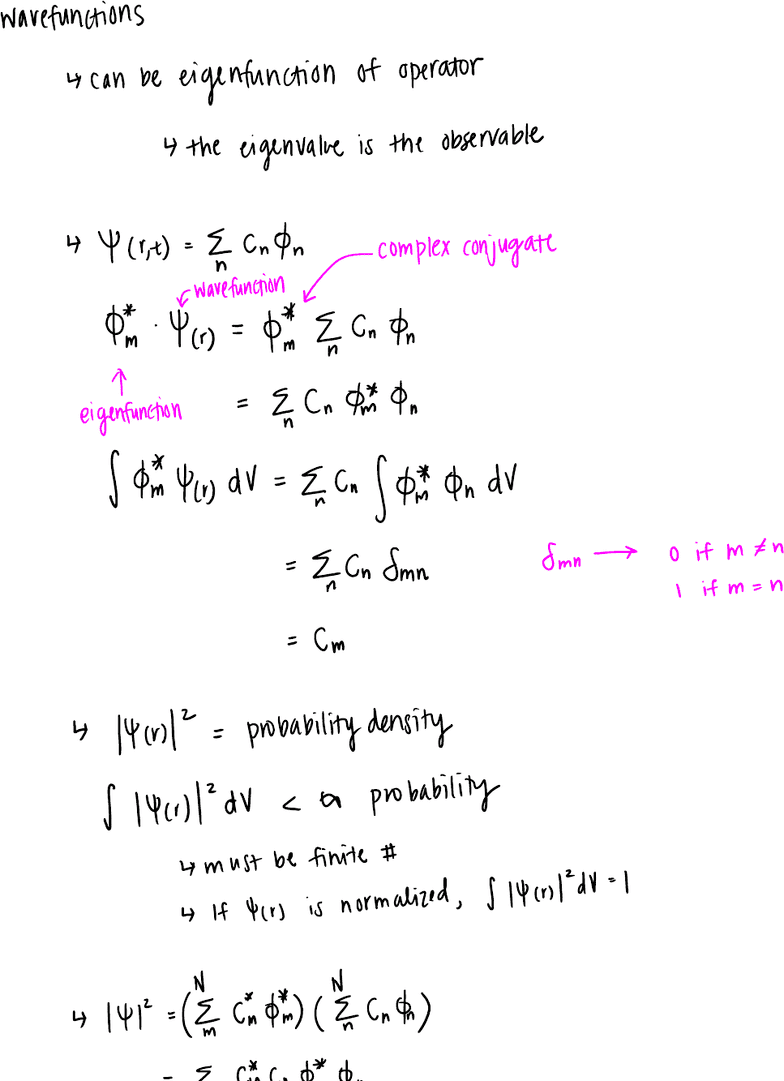 wavefunctions
↳ can be eigenfunction of operator
↳ the eigenvalue is the observable
↳ Ψ(r,t) = Σn Cn ϕn
complex conjugate
wavefunction
ϕm* · Ψ(r) = ϕm* Σn Cn ϕn
eigenfunction
= Σn Cn ϕm* ϕn
∫ ϕm* Ψ(r) dV = Σn Cn ∫ ϕm* ϕn dV
= Σn Cn δmn
δmn → 0 if m ≠ n
1 if m = n
= Cm
↳ |Ψ(r)|² = probability density
∫ |Ψ(r)|² dV < ∞ probability
↳ must be finite #
↳ If Ψ(r) is normalized, ∫ |Ψ(r)|² dV = 1
↳ |Ψ|² = (Σm^N Cm* ϕm*) (Σn^N Cn ϕn)
= Σ Cm* Cn ϕ* ϕn